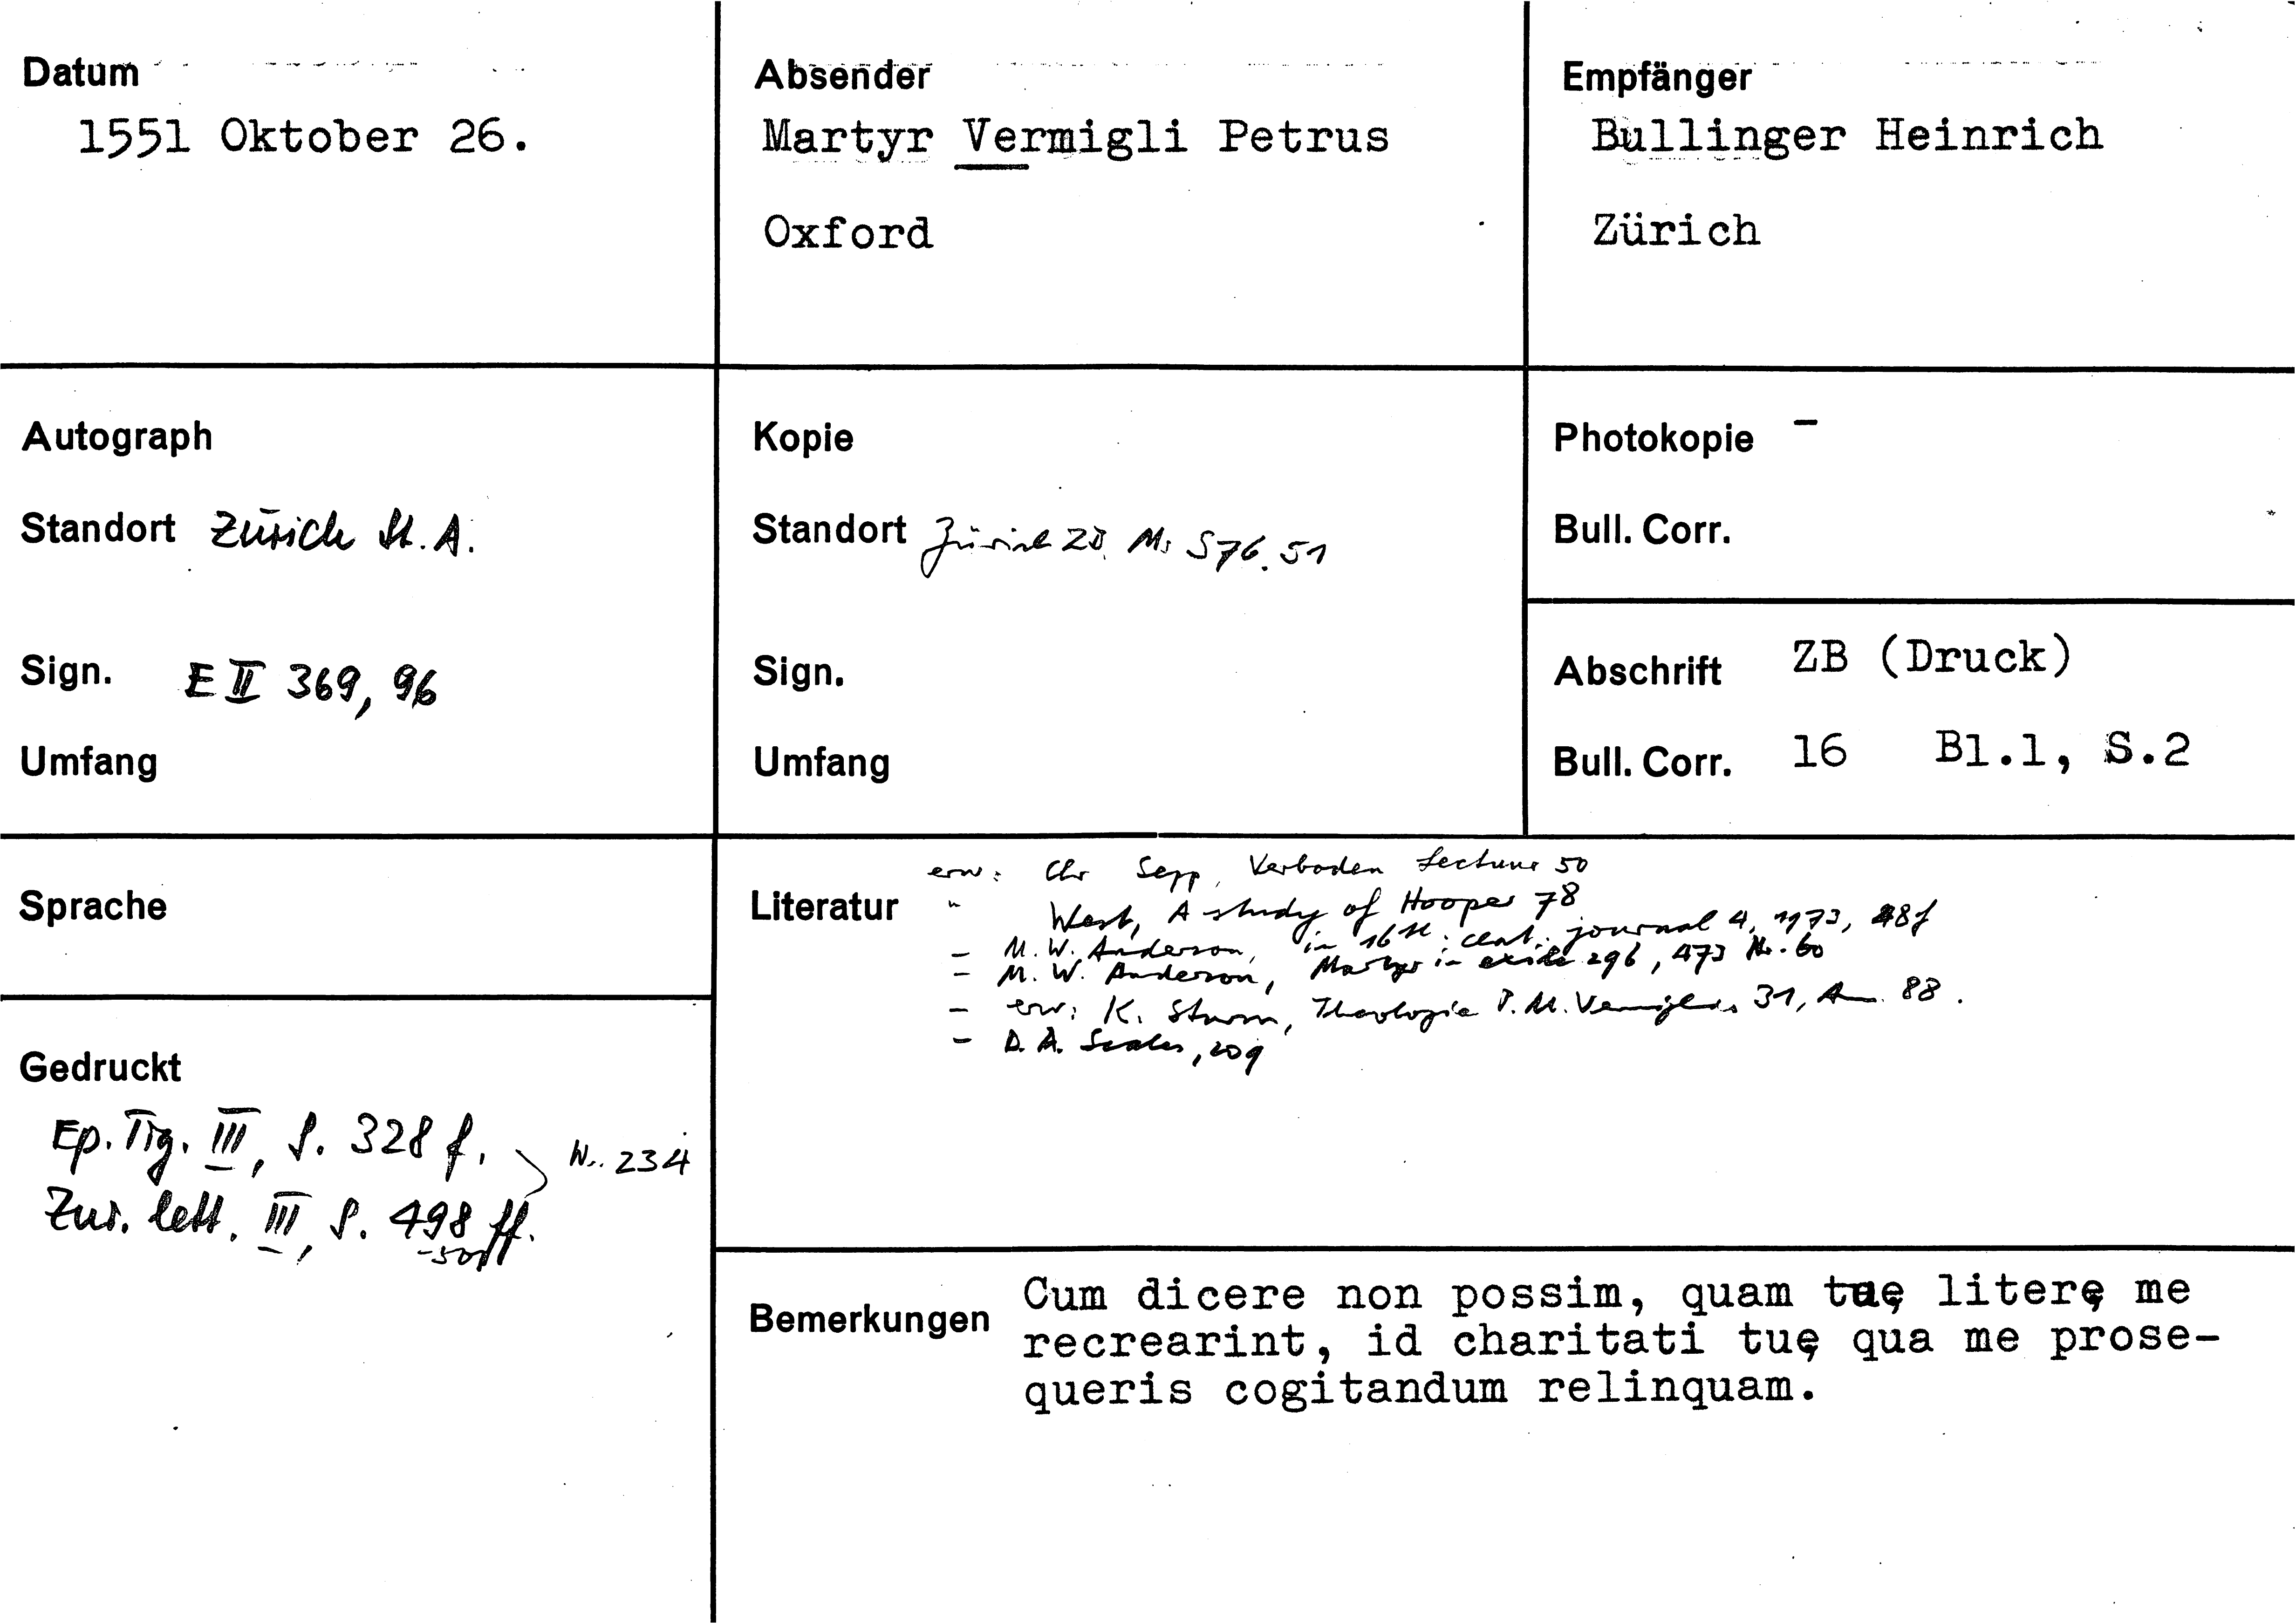 Datum
1551 Oktober 26.
Absender
Martyr Vermigli Petrus
Oxford
Empfänger
Bullinger Heinrich
Zürich
Autograph
Standort Zürich St.A.
Sign. E II 369, 96
Umfang
Kopie
Standort Zürich ZB Ms S 76. 51
Sign.
Umfang
Photokopie –
Bull. Corr.
Abschrift ZB (Druck)
Bull. Corr. 16 Bl.1, S.2
Sprache
Gedruckt
Ep. Tig. III, S. 328 f.
Nr. 234
Zur. lett. III, S. 498 ff.
Literatur
erw: Chr Sepp, Verboden Lectuur 50
" West, A study of Hooper 78
– M. W. Anderson, in 16th cent. journal 4, 1973, 48f
– M. W. Anderson, Martyr in exile 296, 473 Nr. 60
– erw: K. Sturm, Theologie P. M. Vermiglis 31, Am. 88.
– D. A. Scales, 209
Bemerkungen
Cum dicere non possim, quam tuę literę me
recrearint, id charitati tuę qua me prose-
queris cogitandum relinquam.